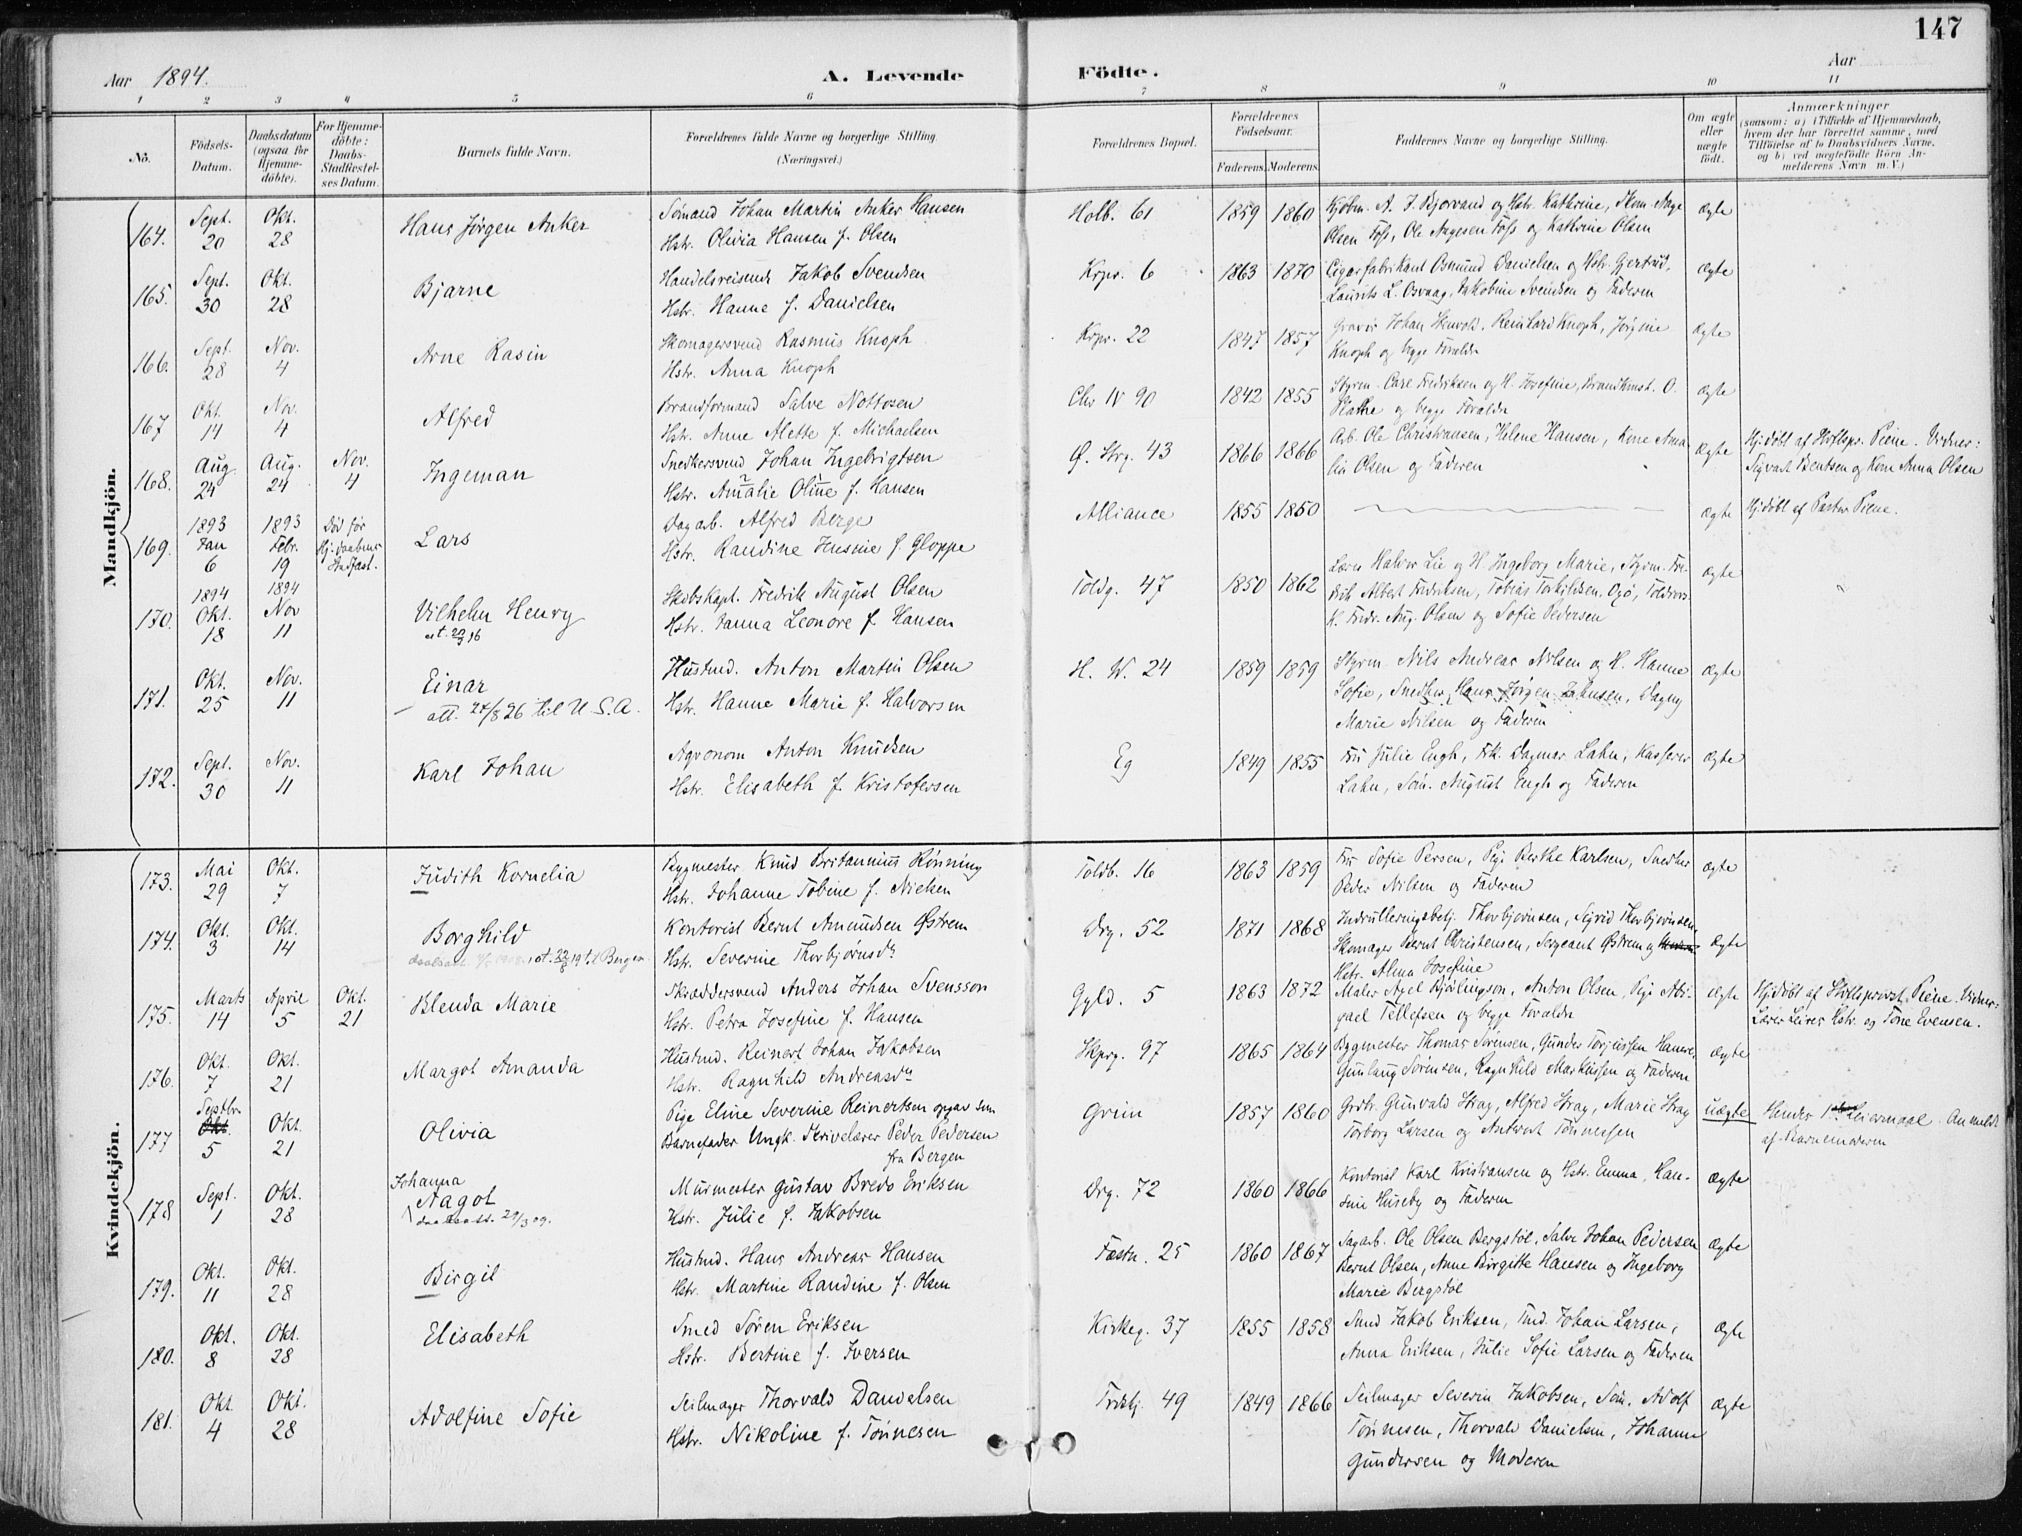 147
Aar 1894. A. Levende Födte. Aar
1 2 3 4 5 6 7 8 9 10 11
No. Födsels-Datum. Daabsdatum (ogsaa for Hjemme-döbte). For Hjemme-döbte: Daabs-Stadfæstel-ses Datum. Barnets fulde Navn. Forældrenes fulde Navne og borgerlige Stilling. (Næringsvei.) Forældrenes Bopæl. Forældrenes Födselsaar. Faderens. Moderens. Faddernes Navne og borgerlige Stilling. Om ægte eller uægte födt. Anmærkninger (saasom: a) i Tilfælde af Hjemmedaab, hvem der har forrettet samme, med Tilföielse af to Daabsvidners Navne, og b) ved uægtefödte Börn An-melderens Navn m. V.)
Mandkjön.
164. Sept. 20 Okt. 28 Hans Jörgen Anker Sömand Johan Martin Anker Hansen
Hstr. Olivia Hansen f. Olsen Holb. 61 1859 1860 Kjöbm. A. J. Bjorvand og Hstr. Kathrine, Skom. Aage
Olsen Foss, Ole Aagesen Foss og Kathrine Olsen ægte
165. Sept. 30 Okt. 28 Bjarne Handelsreisende Jakob Svendsen
Hstr. Hanne f. Danielsen Krpr. 6 1863 1870 Cigarfabrikant Osmund Danielsen og Hstr. Gjertrud,
Laurits L. Osvaag, Jakobine Svendsen og Faderen ægte
166. Sept. 28 Nov. 4 Arne Rasin Skomagersvend Rasmus Knoph
Hstr. Anna Knoph Krpr. 22 1847 1857 Gravör Johan Skuvold, Reinhard Knoph, Jörgine
Knoph og begge Forældre ægte
167 Okt. 14 Nov. 4 Alfred Brandformand Salve Nottosen
Hstr. Anne Alette f. Michaelsen Chr IV 90 1842 1855 Styrm. Carl Fredriksen og H. Josefine, Brandkonst. O.
Slathe og begge Forældre ægte
168. Aug. 24 Aug. 24 Nov. 4 Ingeman Snedkersvend Johan Ingebrigtsen
Hstr. Amalie Oline f. Hansen Ø. Strg. 43 1866 1866 Arb. Ole Christiansen, Helene Hansen, Kone Ama-
lie Olsen og Faderen ægte Hj.döbt af Stiftspr. Piene. Vidner:
Sigvart Bentsen og Kone Anna Olsen
169. 1893 Jan 6 1893 Febr. 19 Död för Hj.daabens Stadfæst. Lars Dagarb. Alfred Berge
Hstr. Randine Jensine f. Gloppe Alliance 1855 1850 ægte Hj.döbt af Pastor Piene.
170. 1894 Okt. 18 1894 Nov 11 Vilhelm Henry Skibskapt. Fredrik August Olsen
Hstr. Janna Leonore f. Hansen Toldg. 47 1850 1862 Lærer Halvor Lie og H. Ingeborg Marie, Styrm. Fre-
drik Albert Fredriksen, Tobias Torkildsen, Ogö,
H. Fredr. Aug. Olsen og Sofie Pedersen ægte
171. Okt. 25 Nov. 11 Einar
att. 24/8 26 til U.S.A. Hustmd. Anton Martin Olsen
Hstr. Hanne Marie f. Halvorsen H. W. 24 1859 1859 Styrm. Nils Andreas Nilsen og H. Hanne
Sofie, Snedker Hans Jörgen Johnsen, Dagny
Marie Nilsen og Faderen ægte
172. Sept. 30 Nov. 11 Karl Johan Agronom Anton Knudsen
Hstr. Elisabeth f. Kristofersen Eg 1849 1855 Fru Julie Engh, Frk. Dagmar Lahn, Kasserer
Lahn, Söm. August Engh og Faderen ægte
Kvindekjön.
173. Mai 29 Okt. 7 Judith Kornelia Bygmester Knud Britannius Rönning
Hstr. Johanne Tobine f. Nielsen Toldb. 16 1863 1859 Fru Sofie Persen, Pige Berthe Karlsen, Snedker
Peder Nilsen og Faderen ægte
174. Okt. 3 Okt. 14 Borghild Kontorist Bernt Amundsen Østrem
Hstr. Severine Thorbjörnsdr Drg. 52 1871 1868 Indrulleringsbetj. Thorbjörnsen, Sigrid Thorbjörnsen,
Skomager Bernt Christensen, Sergeant Østrem og
Hstr. Alma Josefine ægte
175. Marts 14 April 5 Okt. 21 Blenda Marie Skræddersvend Anders Johan Svensson
Hstr. Petra Josefine f. Hansen Gyld. 5 1863 1872 Maler Axel Björlingson, Anton Olsen, Pige Abi-
gael Tellefsen og begge Forældre ægte Hj.döbt af Stiftsprovst Piene. Vidner:
Lærer Leires Hstr. og Tone Evensen.
176. Okt. 7 Okt. 21 Margot Amanda Hustmd. Reinert Johan Jakobsen
Hstr. Ragnhild Andreasdr Skprg. 97 1865 1864 Bygmester Thomas Sörensen, Gunder Torjussen Hamre,
Gunlaug Sörensen, Ragnhild Markussen og Faderen ægte
177 Septbr. 5 Okt. 21 Olivia Pige Eline Severine Reinertsen opgav som
Barnefader Ungk. Skrivelærer Peder Pedersen
fra Bergen Grim 1857 1860 Grdbr. Gunvald Strag, Alfred Strag, Marie Strag
Torborg Larsen og Antont Tönnesen uægte Hendes 1ste Leiermaal. Anmeldt
af Barnemoderen
178 Sept. 1 Okt. 28 Johanna
Nagot
daabsatt. 29/3 09. Murmester Gustav Bredo Eriksen
Hstr. Julie f. Jakobsen Drg. 72 1860 1866 Kontorist Karl Kristiansen og Hstr. Emma, Han-
sine Huseby og Faderen ægte
179. Okt. 11 Okt. 28 Birgit Hustmd. Hans Andreas Hansen
Hstr. Martine Randine f. Olsen Fæstn. 25 1860 1867 Sagarb. Ole Olsen Bergstöl, Salve Johan Pedersen
Bernt Olsen, Anne Birgitte Hansen og Ingeborg
Marie Bergstöl ægte
180. Okt. 8 Okt. 28 Elisabeth Smed Sören Eriksen
Hstr. Bertine f. Iversen Kirkeg. 37 1855 1858 Smed Jakob Eriksen, Tmd. Johan Larsen,
Anna Eriksen, Julie Sofie Larsen og Faderen ægte
181. Okt. 4 Okt. 28 Adolfine Sofie Seilmager Thorvald Danielsen
Hstr. Nikoline f. Tönnesen 49 1849 1866 Seilmager Severin Jakobsen, Söm. Adolf
Tönnesen, Thorvald Danielsen, Johanne
Gundersen og Moderen ægte